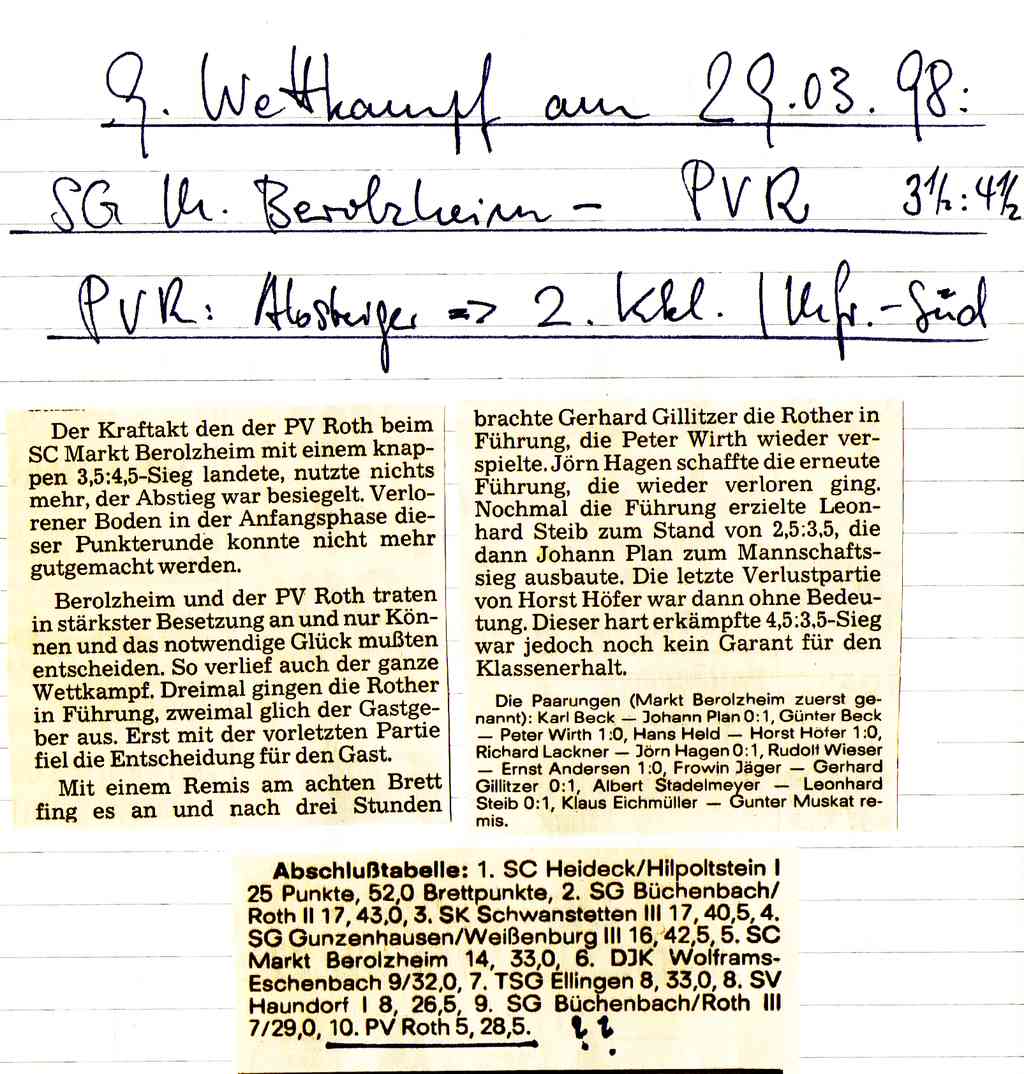 9. Wettkampf am 29.03.98:
SG M. Berolzheim – PVR 3½:4½
PVR: Absteiger => 2. Kkl. / Mfr.-Süd
Der Kraftakt den der PV Roth beim
SC Markt Berolzheim mit einem knap-
pen 3,5:4,5-Sieg landete, nutzte nichts
mehr, der Abstieg war besiegelt. Verlo-
rener Boden in der Anfangsphase die-
ser Punkterunde konnte nicht mehr
gutgemacht werden.
Berolzheim und der PV Roth traten
in stärkster Besetzung an und nur Kön-
nen und das notwendige Glück mußten
entscheiden. So verlief auch der ganze
Wettkampf. Dreimal gingen die Rother
in Führung, zweimal glich der Gastge-
ber aus. Erst mit der vorletzten Partie
fiel die Entscheidung für den Gast.
Mit einem Remis am achten Brett
fing es an und nach drei Stunden
brachte Gerhard Gillitzer die Rother in
Führung, die Peter Wirth wieder ver-
spielte. Jörn Hagen schaffte die erneute
Führung, die wieder verloren ging.
Nochmal die Führung erzielte Leon-
hard Steib zum Stand von 2,5:3,5, die
dann Johann Plan zum Mannschafts-
sieg ausbaute. Die letzte Verlustpartie
von Horst Höfer war dann ohne Bedeu-
tung. Dieser hart erkämpfte 4,5:3,5-Sieg
war jedoch noch kein Garant für den
Klassenerhalt.
Die Paarungen (Markt Berolzheim zuerst ge-
nannt): Karl Beck — Johann Plan 0:1, Günter Beck
— Peter Wirth 1:0, Hans Held — Horst Höfer 1:0,
Richard Lackner — Jörn Hagen 0:1, Rudolf Wieser
— Ernst Andersen 1:0, Frowin Jäger — Gerhard
Gillitzer 0:1, Albert Stadelmeyer — Leonhard
Steib 0:1, Klaus Eichmüller — Gunter Muskat re-
mis.
Abschlußtabelle: 1. SC Heideck/Hilpoltstein I
25 Punkte, 52,0 Brettpunkte, 2. SG Büchenbach/
Roth II 17, 43,0, 3. SK Schwanstetten III 17, 40,5, 4.
SG Gunzenhausen/Weißenburg III 16, 42,5, 5. SC
Markt Berolzheim 14, 33,0, 6. DJK Wolframs-
Eschenbach 9/32,0, 7. TSG Ellingen 8, 33,0, 8. SV
Haundorf I 8, 26,5, 9. SG Büchenbach/Roth III
7/29,0, 10. PV Roth 5, 28,5. ??